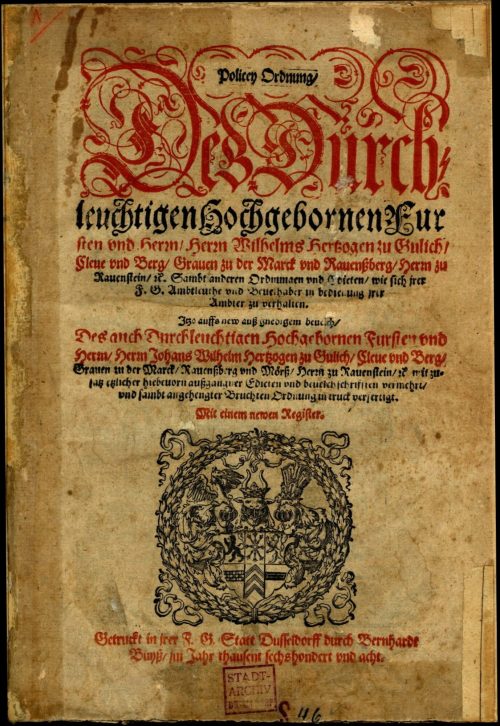 Policey Ordnung/
Des Durch-
leuchtigen Hochgebornen Fur
sten vnd Herrn/ Herrn Wilhelms Hertzogen zu Gulich/
Cleve vnd Berg/ Graven zu der Marck vnd Ravenßberg/ Herrn zu
Ravenstein/ ꝛc. Sambt anderen Ordnungen vnd Edicten/ wie sich jrer
F. G. Ambtleuthe vnd Bevelhaber in bedienung jrer
Ambter zu verhalten.
Itzo auffs new auß gnedigem bevelch/
Des auch Durchleuchtigen Hochgebornen Fursten vnd
Herrn/ Herrn Johans Wilhelm Hertzogen zu Gulich/ Cleve vnd Berg/
Graven zu der Marck/ Ravenßberg vnd Mörß/ Herrn zu Ravenstein/ ꝛc. mit zu-
satz etzlicher hiebevorn außgangner Edicten vnd bevelchschrifften vermehrt/
vnd sambt angehengter Bruchten Ordnung in truck verfertigt.
Mit einem newen Register.
Getruckt in jrer F. G. Statt Dusseldorff durch Bernhardt
Buyß/ im Jahr thausent sechshondert vnd acht.
STADT-
ARCHIV
46